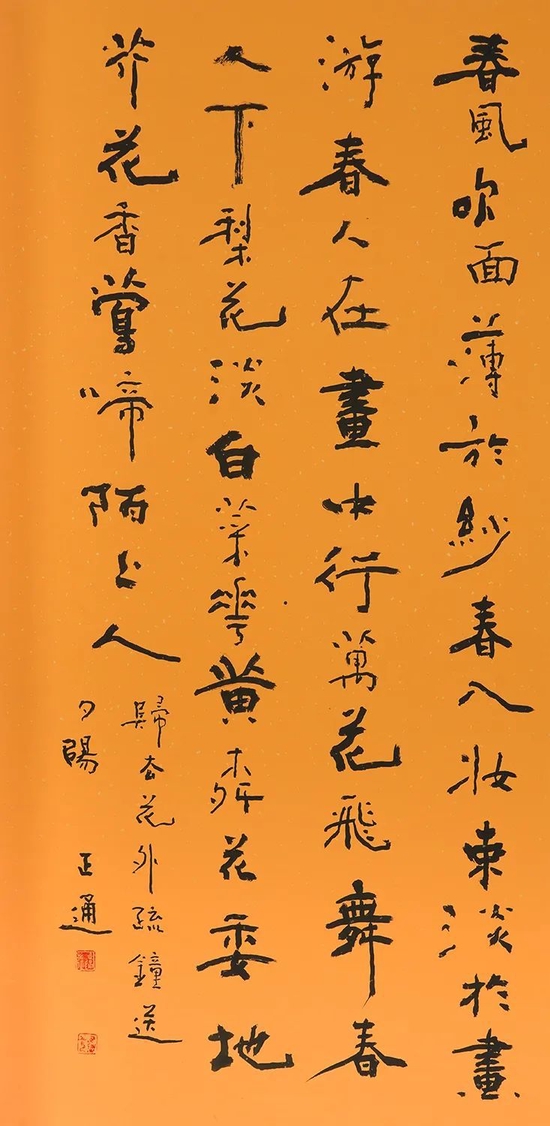 春風吹面薄於紗春人妆束淡於畫
游春人在畫中行萬花飛舞春
人下梨花淡白菜華黄桺花委地
芥花香鶯啼陌上人
歸去花外疏鐘送
夕陽 正通